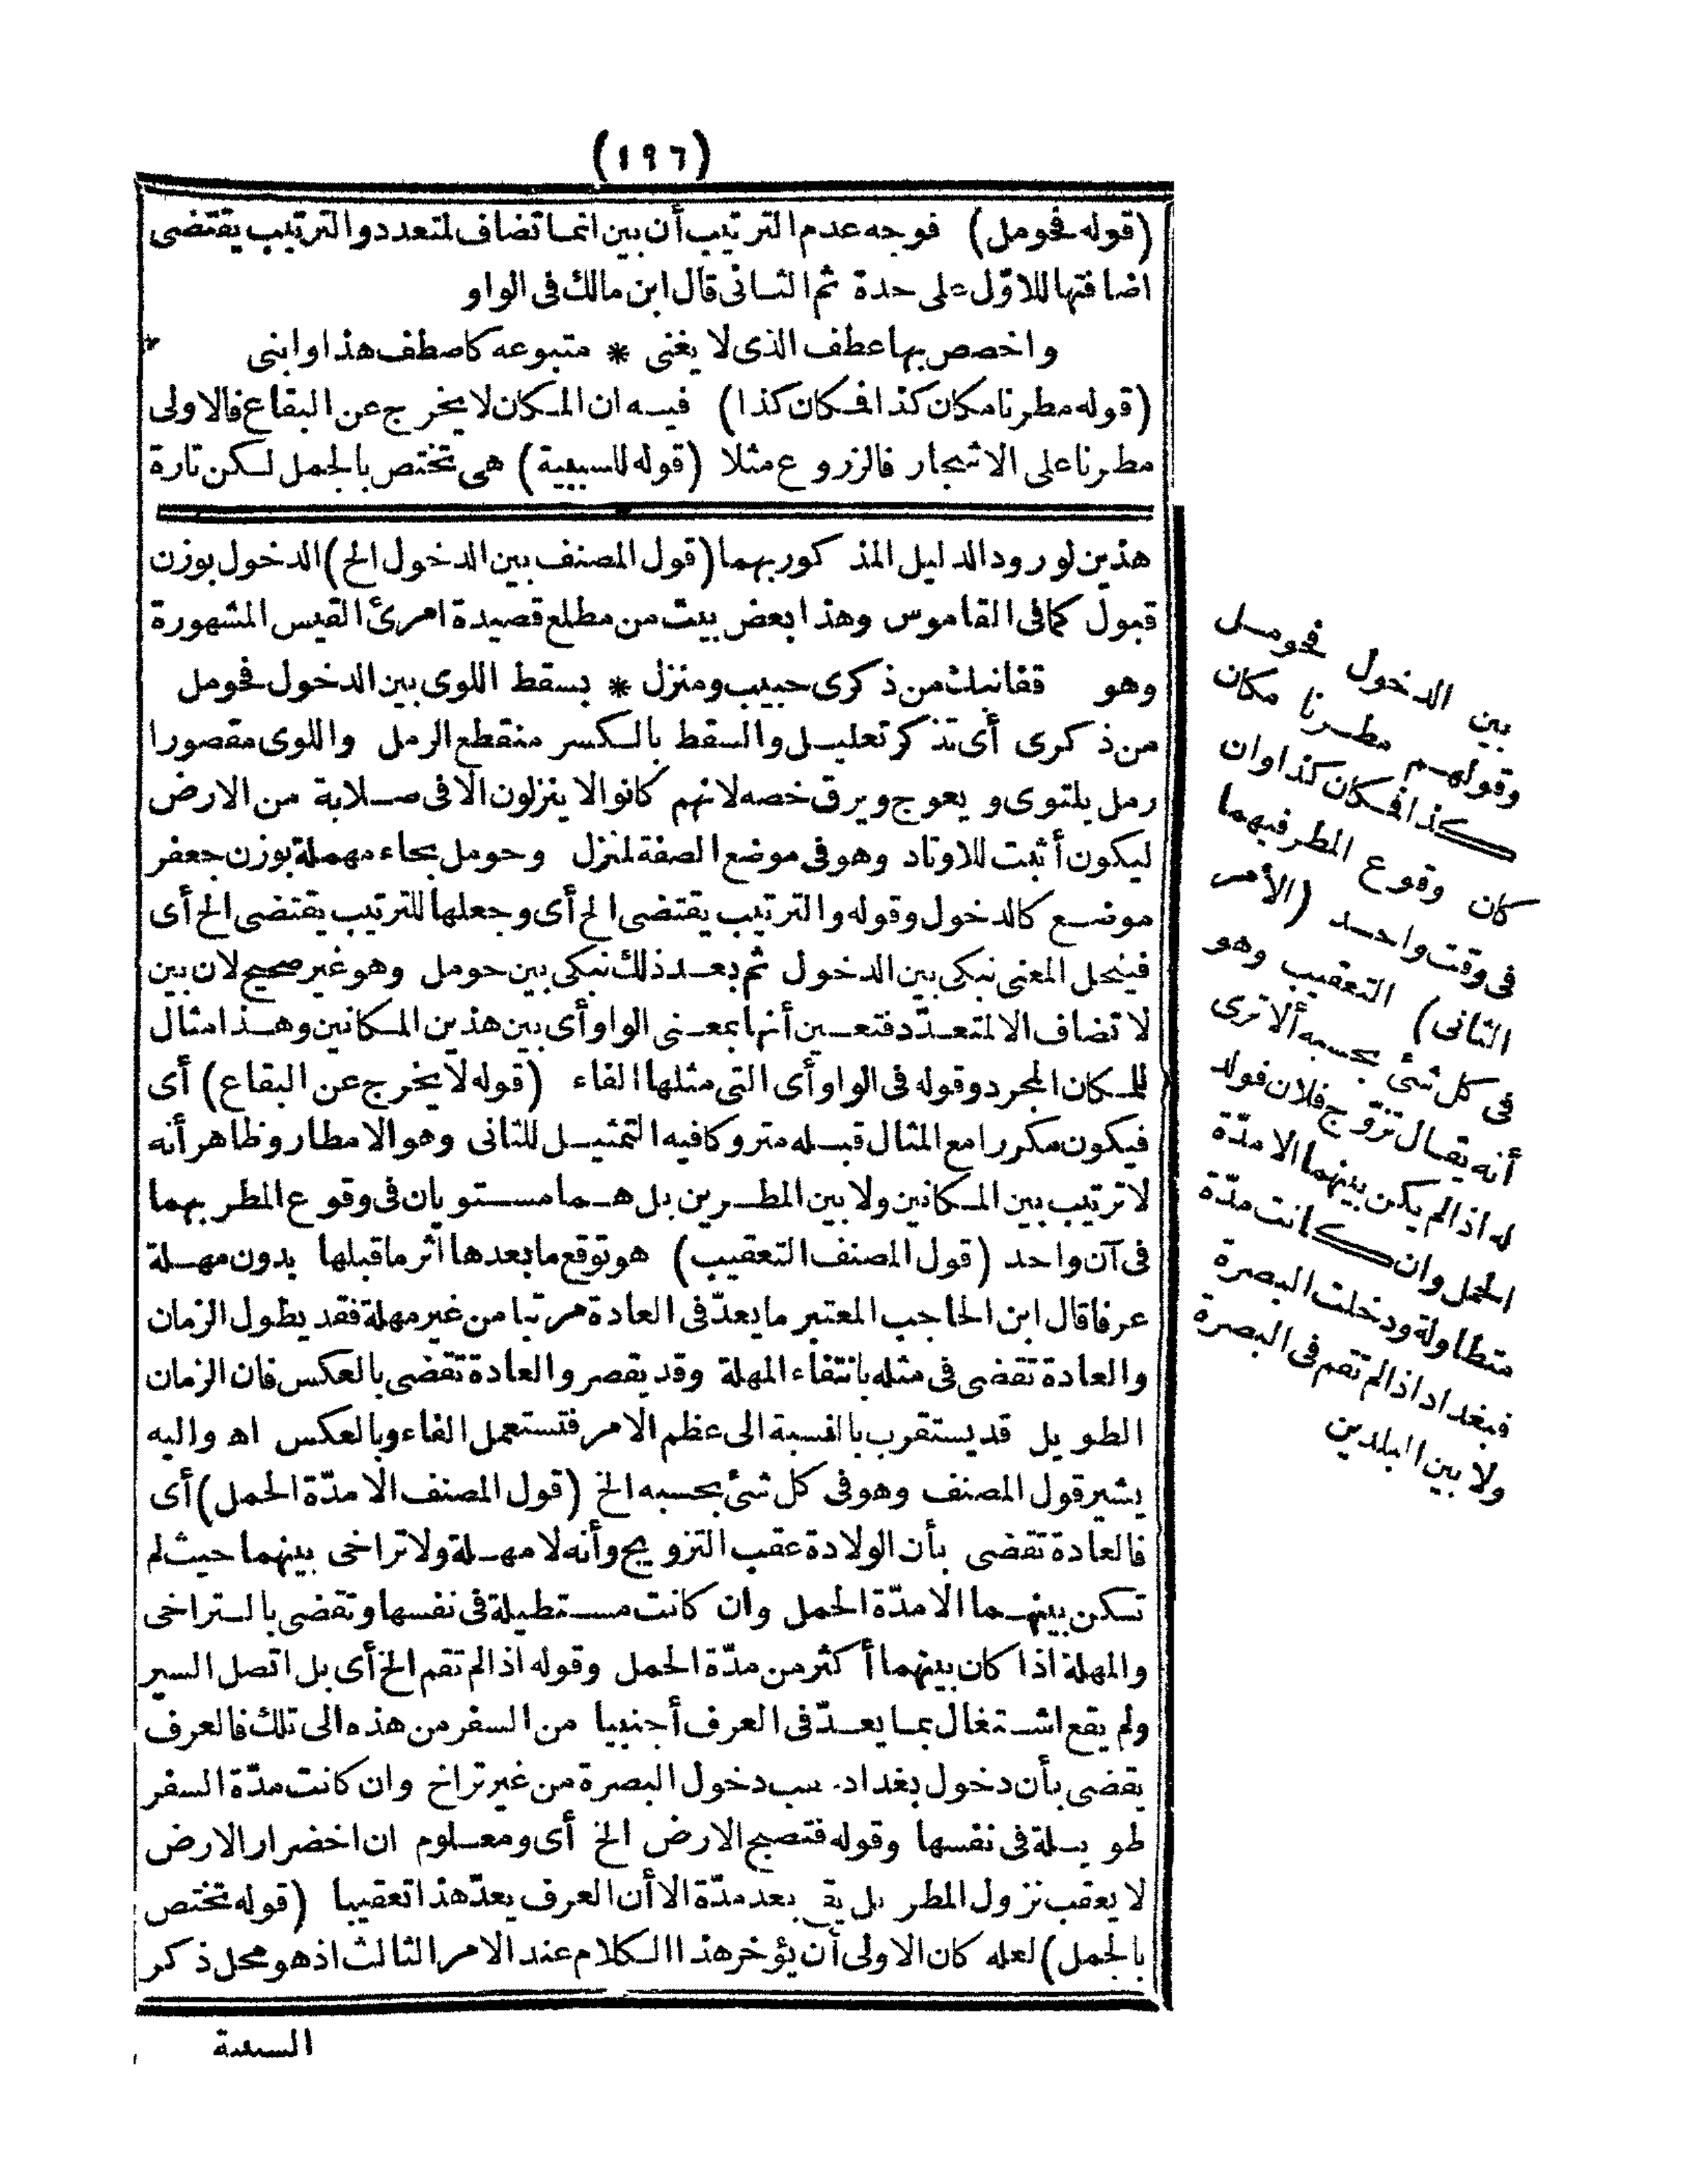 (١٩٦)
(قوله فحومل) فوجه عدم الترتيب أن بين انما تضاف لمتعدد والترتيب يقتضى
اضافتها للاوّل على حدة ثم الثانى قال ابن مالك فى الواو
واخصص بها عطف الذى لا يغنى * متبوعه كاصطف هذا وابنى *
(قوله مطرنا مكان كذا فمكان كذا) فيه ان المكان لا يخرج عن البقاع فالاولى
مطرنا على الاشجار فالزروع مثلا (قوله للسببية) هى تختص بالجمل لكن تارة
هذين لورود الدليل المذكور بهما (قول المصنف بين الدخول الخ) الدخول بوزن
قبول كما فى القاموس وهذا بعض بيت من مطلع قصيدة امرئ القيس المشهورة
وهو قفا نبك من ذكرى حبيب ومنزل * بسقط اللوى بين الدخول فحومل
من ذكرى أى تذكر تعليل والسقط بالكسر منقطع الرمل واللوى مقصورا
رمل يلتوى ويعوج ويرق خصه لانهم كانوا لا ينزلون الا فى صلابة من الارض
ليكون أثبت للاوتاد وهو فى موضع الصفة لمنزل وحومل بحاء مهملة بوزن جعفر
موضع كالدخول وقوله والترتيب يقتضى الخ أى وجعلها للترتيب يقتضى الخ أى
فينحل المعنى نبكى بين الدخول ثم بعد ذلك نبكى بين حومل وهو غير صحيح لان بين
لا تضاف الا لمتعدّد فتعين أنها بمعنى الواو أى بين هذين المكانين وهذا مثال
للمكان المجرد وقوله فى الواو أى التى مثلها الفاء (قوله لا يخرج عن البقاع) أى
فيكون مكررا مع المثال قبله متروكا فيه التمثيل للثانى وهو الامطار وظاهر أنه
لا ترتيب بين المكانين ولا بين المطرين بل هما مستويان فى وقوع المطر بهما
فى آن واحد (قول المصنف التعقيب) هو توقع ما بعدها اثر ما قبلها بدون مهلة
عرفا قال ابن الحاجب المعتبر ما يعدّ فى العادة مرتبا من غير مهلة فقد يطول الزمان
والعادة تقضى فى مثله بانتفاء المهلة وقد يقصر والعادة تقضى بالعكس فان الزمان
الطويل قد يستقرب بالنسبة الى عظم الامر فتستعمل الفاء وبالعكس اه واليه
يشير قول المصنف وهو فى كل شئ بحسبه الخ (قول المصنف الا مدّة الحمل) أى
فالعادة تقضى بأن الولادة عقب التزويج وأنه لا مهلة ولا تراخى بينهما حيث لم
تكن بينهما الا مدّة الحمل وان كانت مستطيلة فى نفسها وتقضى بالتراخى
والمهلة اذا كان بينهما أكثر من مدّة الحمل وقوله اذا لم تقم الخ أى بل اتصل السير
ولم يقع اشتغال بما يعدّ فى العرف أجنبيا من السفر من هذه الى تلك فالعرف
يقضى بأن دخول بغداد دخول البصرة من غير تراخ وان كانت مدّة السفر
طويلة فى نفسها وقوله فتصبح الارض الخ أى ومعلوم ان اخضرار الارض
لا يعقب نزول المطر بل بعد مدّة الا أن العرف يعدّ هذا تعقيبا (قوله تختص
بالجمل) لعله كان الاولى أن يؤخر هذا الكلام عند الامر الثالث اذ هو محل ذكر
السببية
بين الدخول فحومل
وقولهم مطرنا مكان
كذا فمكان كذا وان
كان وقوع المطر فيهما
فى وقت واحد (الأمر
الثانى) التعقيب وهو
فى كل شئ بحسبه ألا ترى
أنه يقال تزوّج فلان فولد
له اذا لم يكن بينهما الا مدّة
الحمل وان كانت مدّة
متطاولة ودخلت البصرة
فبغداد اذا لم تقم فى البصرة
ولا بين البلدين